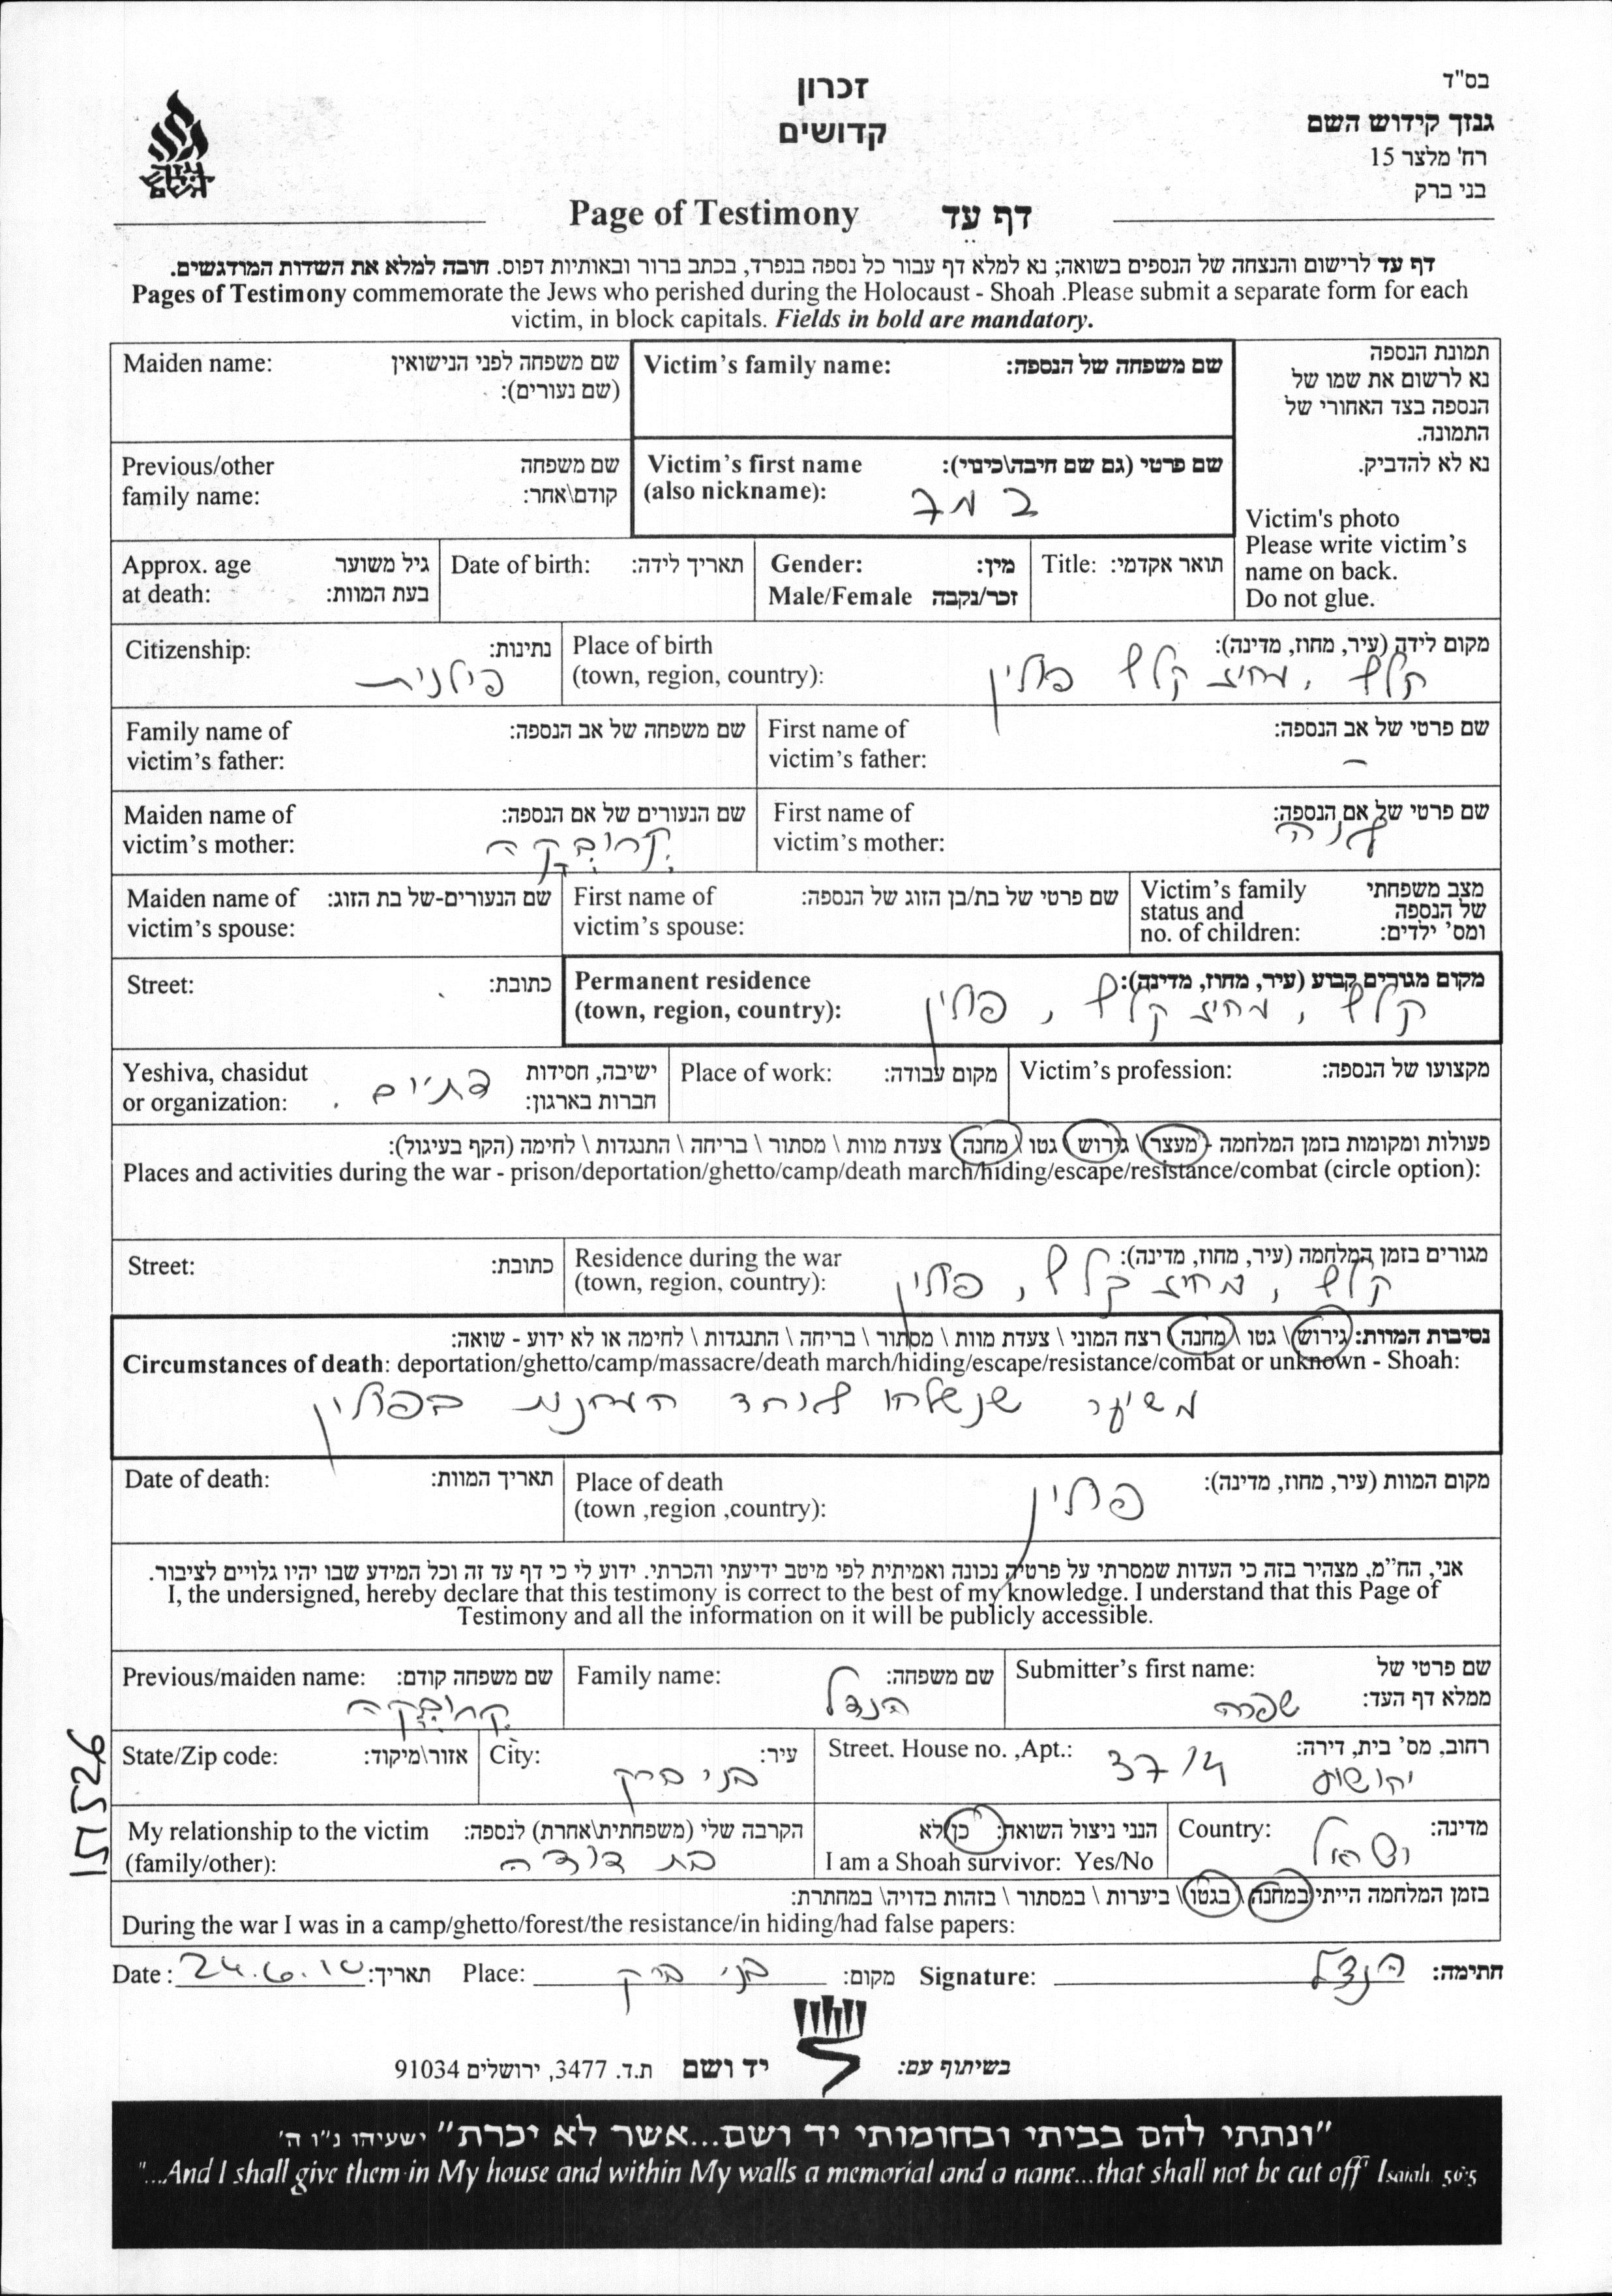 בס"ד
גנזך קידוש השם
רח' מלצר 15
בני ברק
זכרון
קדושים
Page of Testimony דף עד
דף עד לרישום והנצחה של הנספים בשואה; נא למלא דף עבור כל נספה בנפרד, בכתב ברור ובאותיות דפוס. חובה למלא את השדות המודגשים.
Pages of Testimony commemorate the Jews who perished during the Holocaust - Shoah .Please submit a separate form for each
victim, in block capitals. Fields in bold are mandatory.
תמונת הנספה
נא לרשום את שמו של
הנספה בצד האחורי של
התמונה.
נא לא להדביק.
Victim's photo
Please write victim's
name on back.
Do not glue.
Victim's family name: שם משפחה של הנספה:
Maiden name: שם משפחה לפני הנישואין
(שם נעורים):
Victim's first name שם פרטי (גם שם חיבה\כינוי):
(also nickname):
Previous/other שם משפחה
family name: קודם\אחר:
Title: תואר אקדמי:
Gender: מין:
Male/Female זכר/נקבה
Date of birth: תאריך לידה:
Approx. age גיל משוער
at death: בעת המוות:
Place of birth מקום לידה (עיר, מחוז, מדינה):
(town, region, country): קליש, מחוז קליש פולין
Citizenship: נתינות:
פולנית
First name of שם פרטי של אב הנספה:
victim's father: –
Family name of שם משפחה של אב הנספה:
victim's father:
First name of שם פרטי של אם הנספה:
victim's mother:
Maiden name of שם הנעורים של אם הנספה:
victim's mother:
Victim's family מצב משפחתי
status and של הנספה
no. of children: ומס' ילדים:
First name of שם פרטי של בת/בן הזוג של הנספה:
victim's spouse:
Maiden name of שם הנעורים-של בת הזוג:
victim's spouse:
Permanent residence מקום מגורים קבוע (עיר, מחוז, מדינה):
(town, region, country): קליש, מחוז קליש, פולין
Street: כתובת:
Victim's profession: מקצועו של הנספה:
Place of work: מקום עבודה:
Yeshiva, chasidut ישיבה, חסידות
or organization: חברות בארגון: דתיים.
פעולות ומקומות בזמן המלחמה - מעצר\ גירוש\ גטו \ מחנה\ צעדת מוות \ מסתור \ בריחה \ התנגדות \ לחימה (הקף בעיגול):
Places and activities during the war - prison/deportation/ghetto/camp/death march/hiding/escape/resistance/combat (circle option):
Residence during the war מגורים בזמן המלחמה (עיר, מחוז, מדינה):
(town, region, country): קליש, מחוז קליש, פולין
Street: כתובת:
נסיבות המוות: גירוש\ גטו \ מחנה\ רצח המוני \ צעדת מוות \ מסתור \ בריחה \ התנגדות \ לחימה או לא ידוע - שואה:
Circumstances of death: deportation/ghetto/camp/massacre/death march/hiding/escape/resistance/combat or unknown - Shoah:
משוער שנשלחו לאחד המחנות בפולין
Place of death מקום המוות (עיר, מחוז, מדינה):
(town ,region ,country): פולין
Date of death: תאריך המוות:
אני, הח"מ, מצהיר בזה כי העדות שמסרתי על פרטיה נכונה ואמיתית לפי מיטב ידיעתי והכרתי. ידוע לי כי דף עד זה וכל המידע שבו יהיו גלויים לציבור.
I, the undersigned, hereby declare that this testimony is correct to the best of my knowledge. I understand that this Page of
Testimony and all the information on it will be publicly accessible.
Submitter's first name: שם פרטי של
ממלא דף העד: שפרה
Family name: שם משפחה:
הנדל
Previous/maiden name: שם משפחה קודם:
Street. House no. ,Apt.: רחוב, מס' בית, דירה:
יהושע 37/4
City: עיר:
בני ברק
State/Zip code: אזור\מיקוד:
Country: מדינה:
ישראל
הנני ניצול השואה: כן\לא
I am a Shoah survivor: Yes/No
My relationship to the victim הקרבה שלי (משפחתית\אחרת) לנספה:
(family/other): בת דודה
בזמן המלחמה הייתי במחנה \ בגטו\ ביערות \ במסתור \ בזהות בדויה\ במחתרת:
During the war I was in a camp/ghetto/forest/the resistance/in hiding/had false papers:
Date : 24.6.10 תאריך: Place: בני ברק מקום: Signature: הנדל חתימה:
בשיתוף עם: יד ושם ת.ד. 3477, ירושלים 91034
"ונתתי להם בביתי ובחומותי יד ושם...אשר לא יכרת" ישעיהו נ"ו ה'
"...And I shall give them in My house and within My walls a memorial and a name...that shall not be cut off" Isaiah 56:5